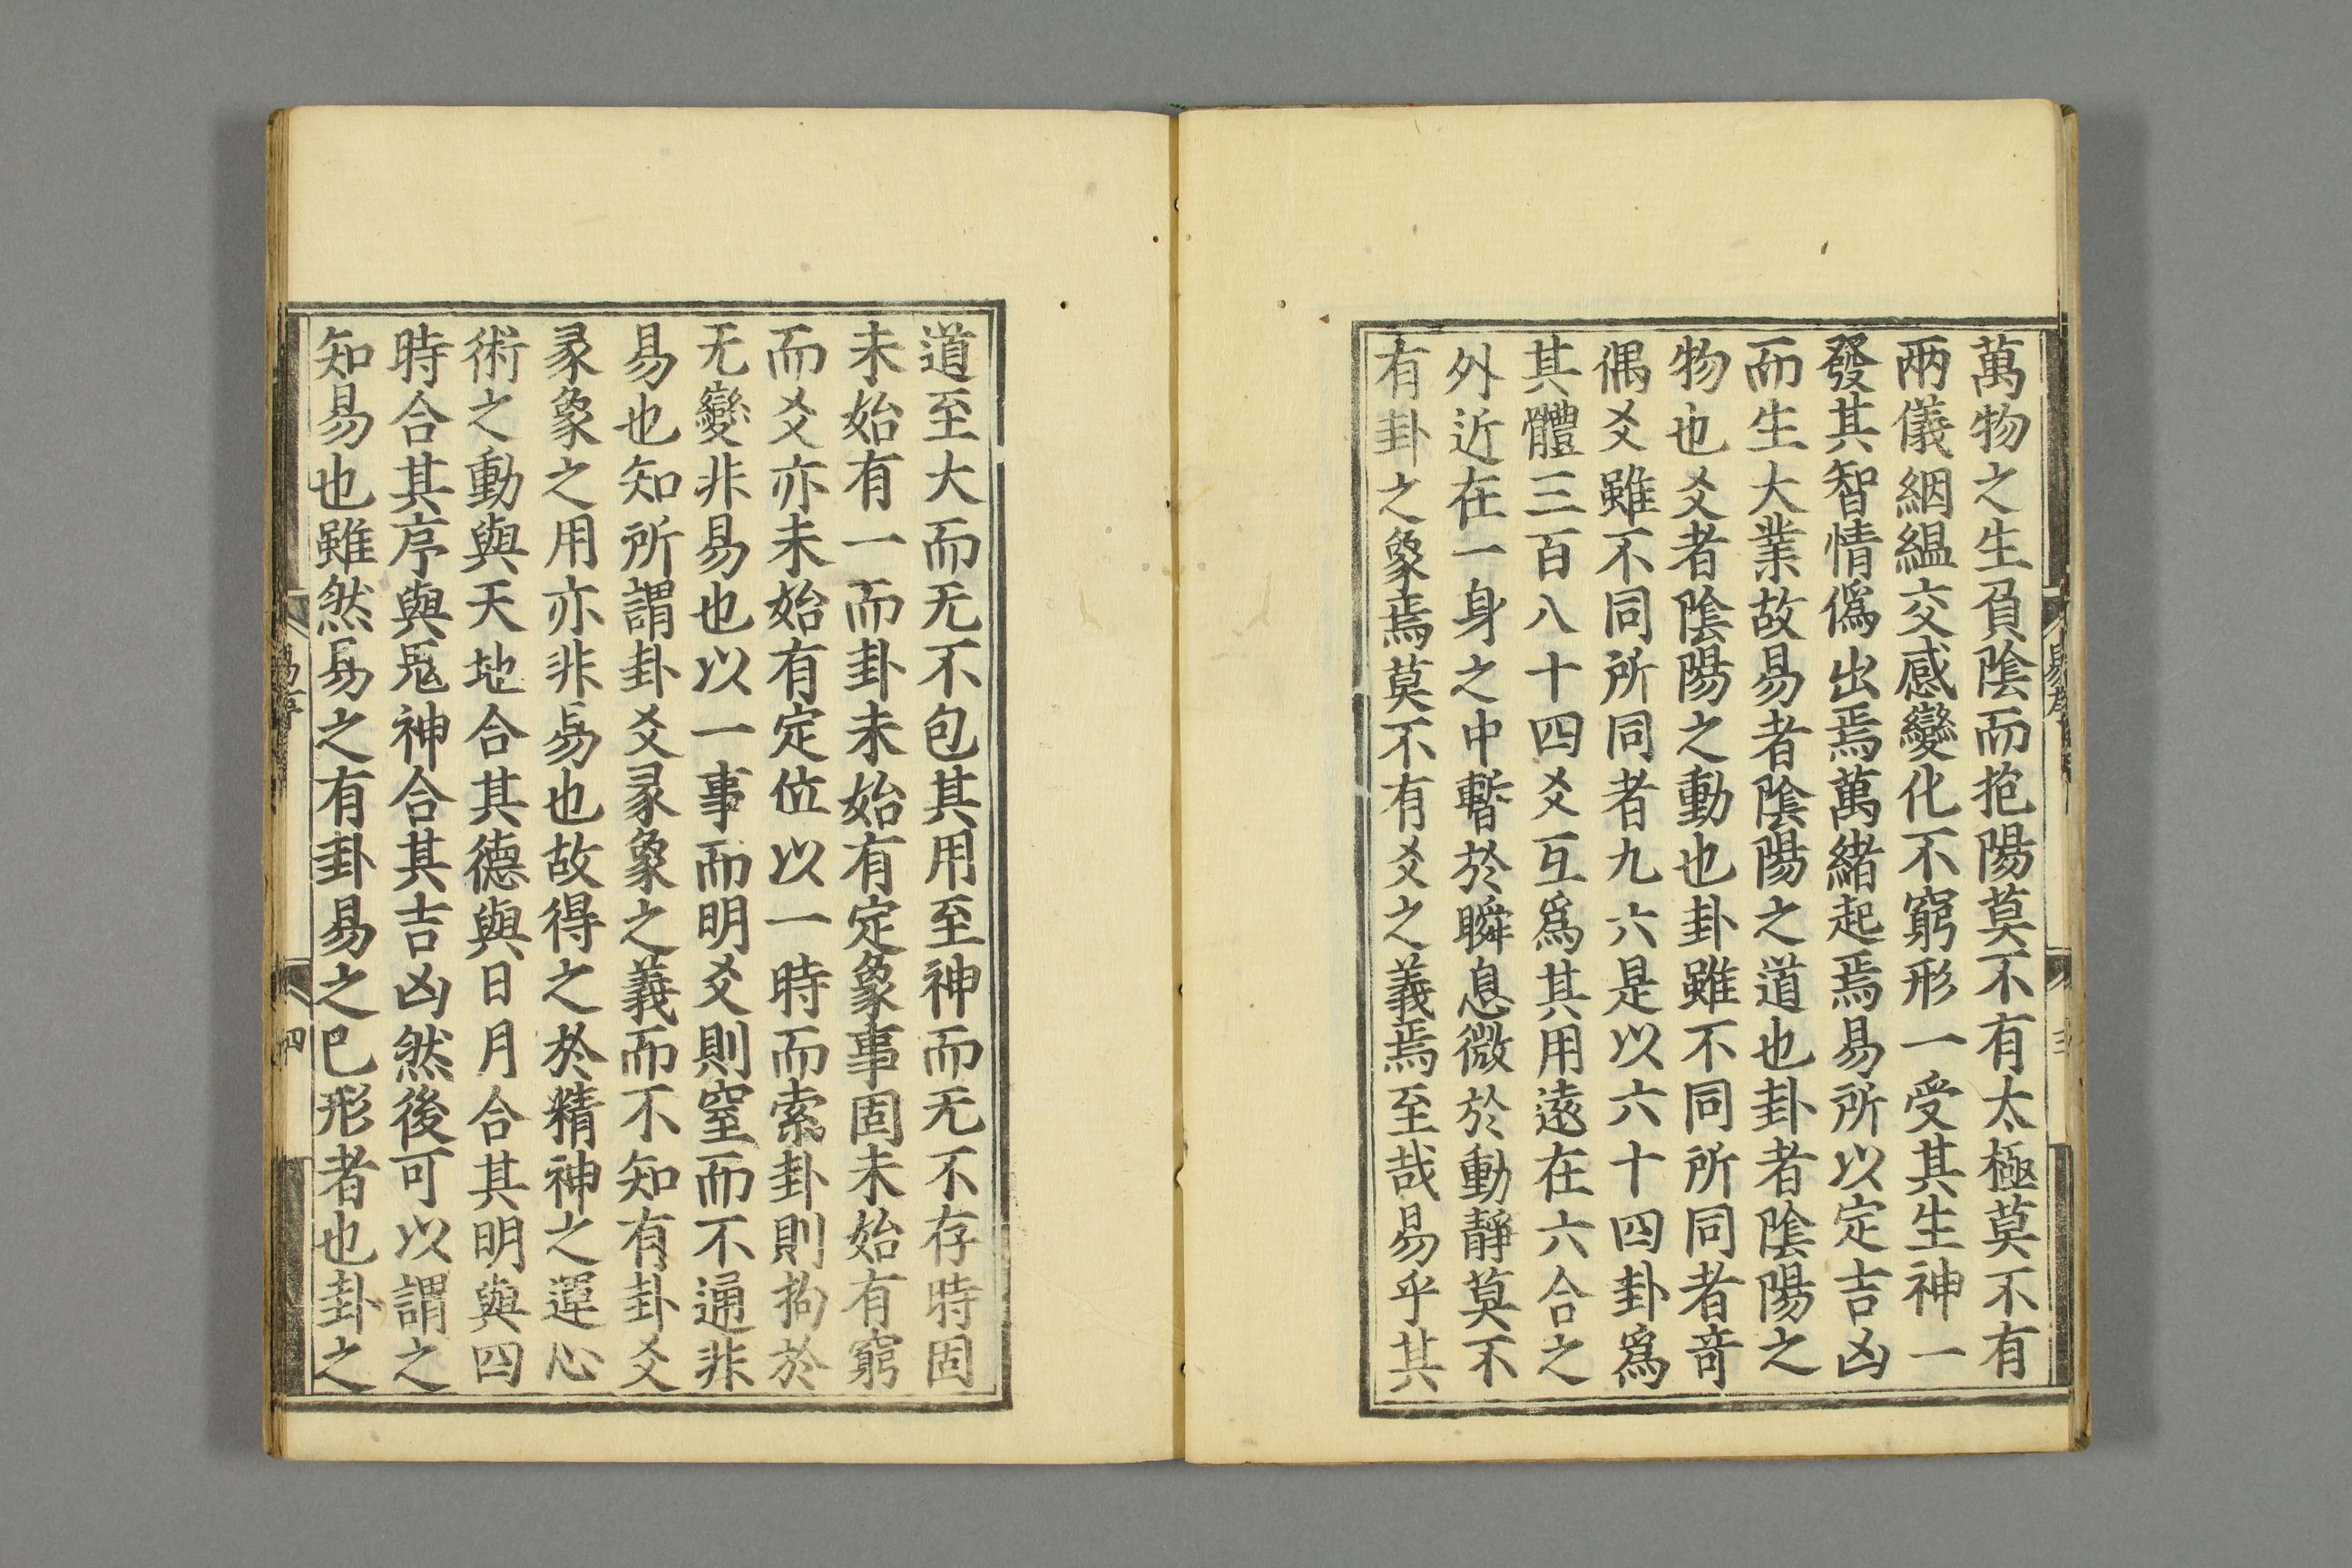 萬物之生負陰而抱陽莫不有太極莫不有
兩儀絪縕交感變化不窮形一受其生神一
發其智情僞出焉萬緖起焉易所以定吉凶
而生大業故易者陰陽之道也卦者陰陽之
物也爻者陰陽之動也卦雖不同所同者奇
偶爻雖不同所同者九六是以六十四卦爲
其體三百八十四爻互爲其用遠在六合之
外近在一身之中暫於瞬息微於動靜莫不
有卦之象焉莫不有爻之義焉至哉易乎其
道至大而无不包其用至神而无不存時固
未始有一而卦未始有定象事固未始有窮
而爻亦未始有定位以一時而索卦則拘於
无變非易也以一事而明爻則窒而不通非
易也知所謂卦爻彖象之義而不知有卦爻
彖象之用亦非易也故得之於精神之運心
術之動與天地合其德與日月合其明與四
時合其序與鬼神合其吉凶然後可以謂之
知易也雖然易之有卦易之已形者也卦之